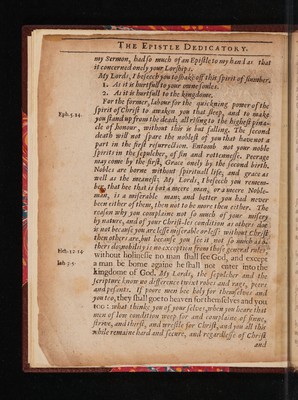 THE EPISTLE DEDICATORY.
my Sermon, had so much of an Epistle to my hand as that
it concerned onely your Lorships.
My Lords, I beseech you to shake off this spirit of slumber.
1. As it is hurtfull to your owne soules.
2. As it is hurtfull to the kingdome.
For the former, labour for the quickning power of the
Eph. 5.14.
spirit of Christ to awaken you that sleep, and to make
you stand up from the dead; all rising to the highest pina-
cle of honour, without this is but falling. The second
death will not spare the noblest of you that have not a
part in the first resurrection. Entomb not your noble
spirits in the sepulcher, of sin and rottennesse. Peerage
may come by the first, Grace onely by the second birth,
Nobles are borne without spirituall life, and grace as
well as the meanest. My Lords, I beseech you remem-
ber, that hee that is but a mere man, or a mere Noble-
man, is a miserable man; and better you had never
been either of them, then not to be more then either. The
reason why you complaine not so much of your misery
by nature, and of your Christ-les condition as others doe
is not because you are lesse miserable or lesse without Christ
then others are, but because you see it not so much as o-
thers do; nobility is no exception from those general rules,
Heb. 12.14
without holinesse no man shall see God, and except
Joh 3.5.
a man be borne againe he shall not enter into the
kingdome of God. My Lords, the sepulcher and the
scripture know no difference twixt robes and rags, peers
and pesants. If poore men bee holy for themselves and
you too, they shall goe to heaven for themselves and you
too: what thinke you of your selves, when you heare that
men of low condition weep for and complaine of sinne,
strive, and thirst, and wrestle for Christ, and you all this
while remaine hard and secure, and regardlesse of Christ
and